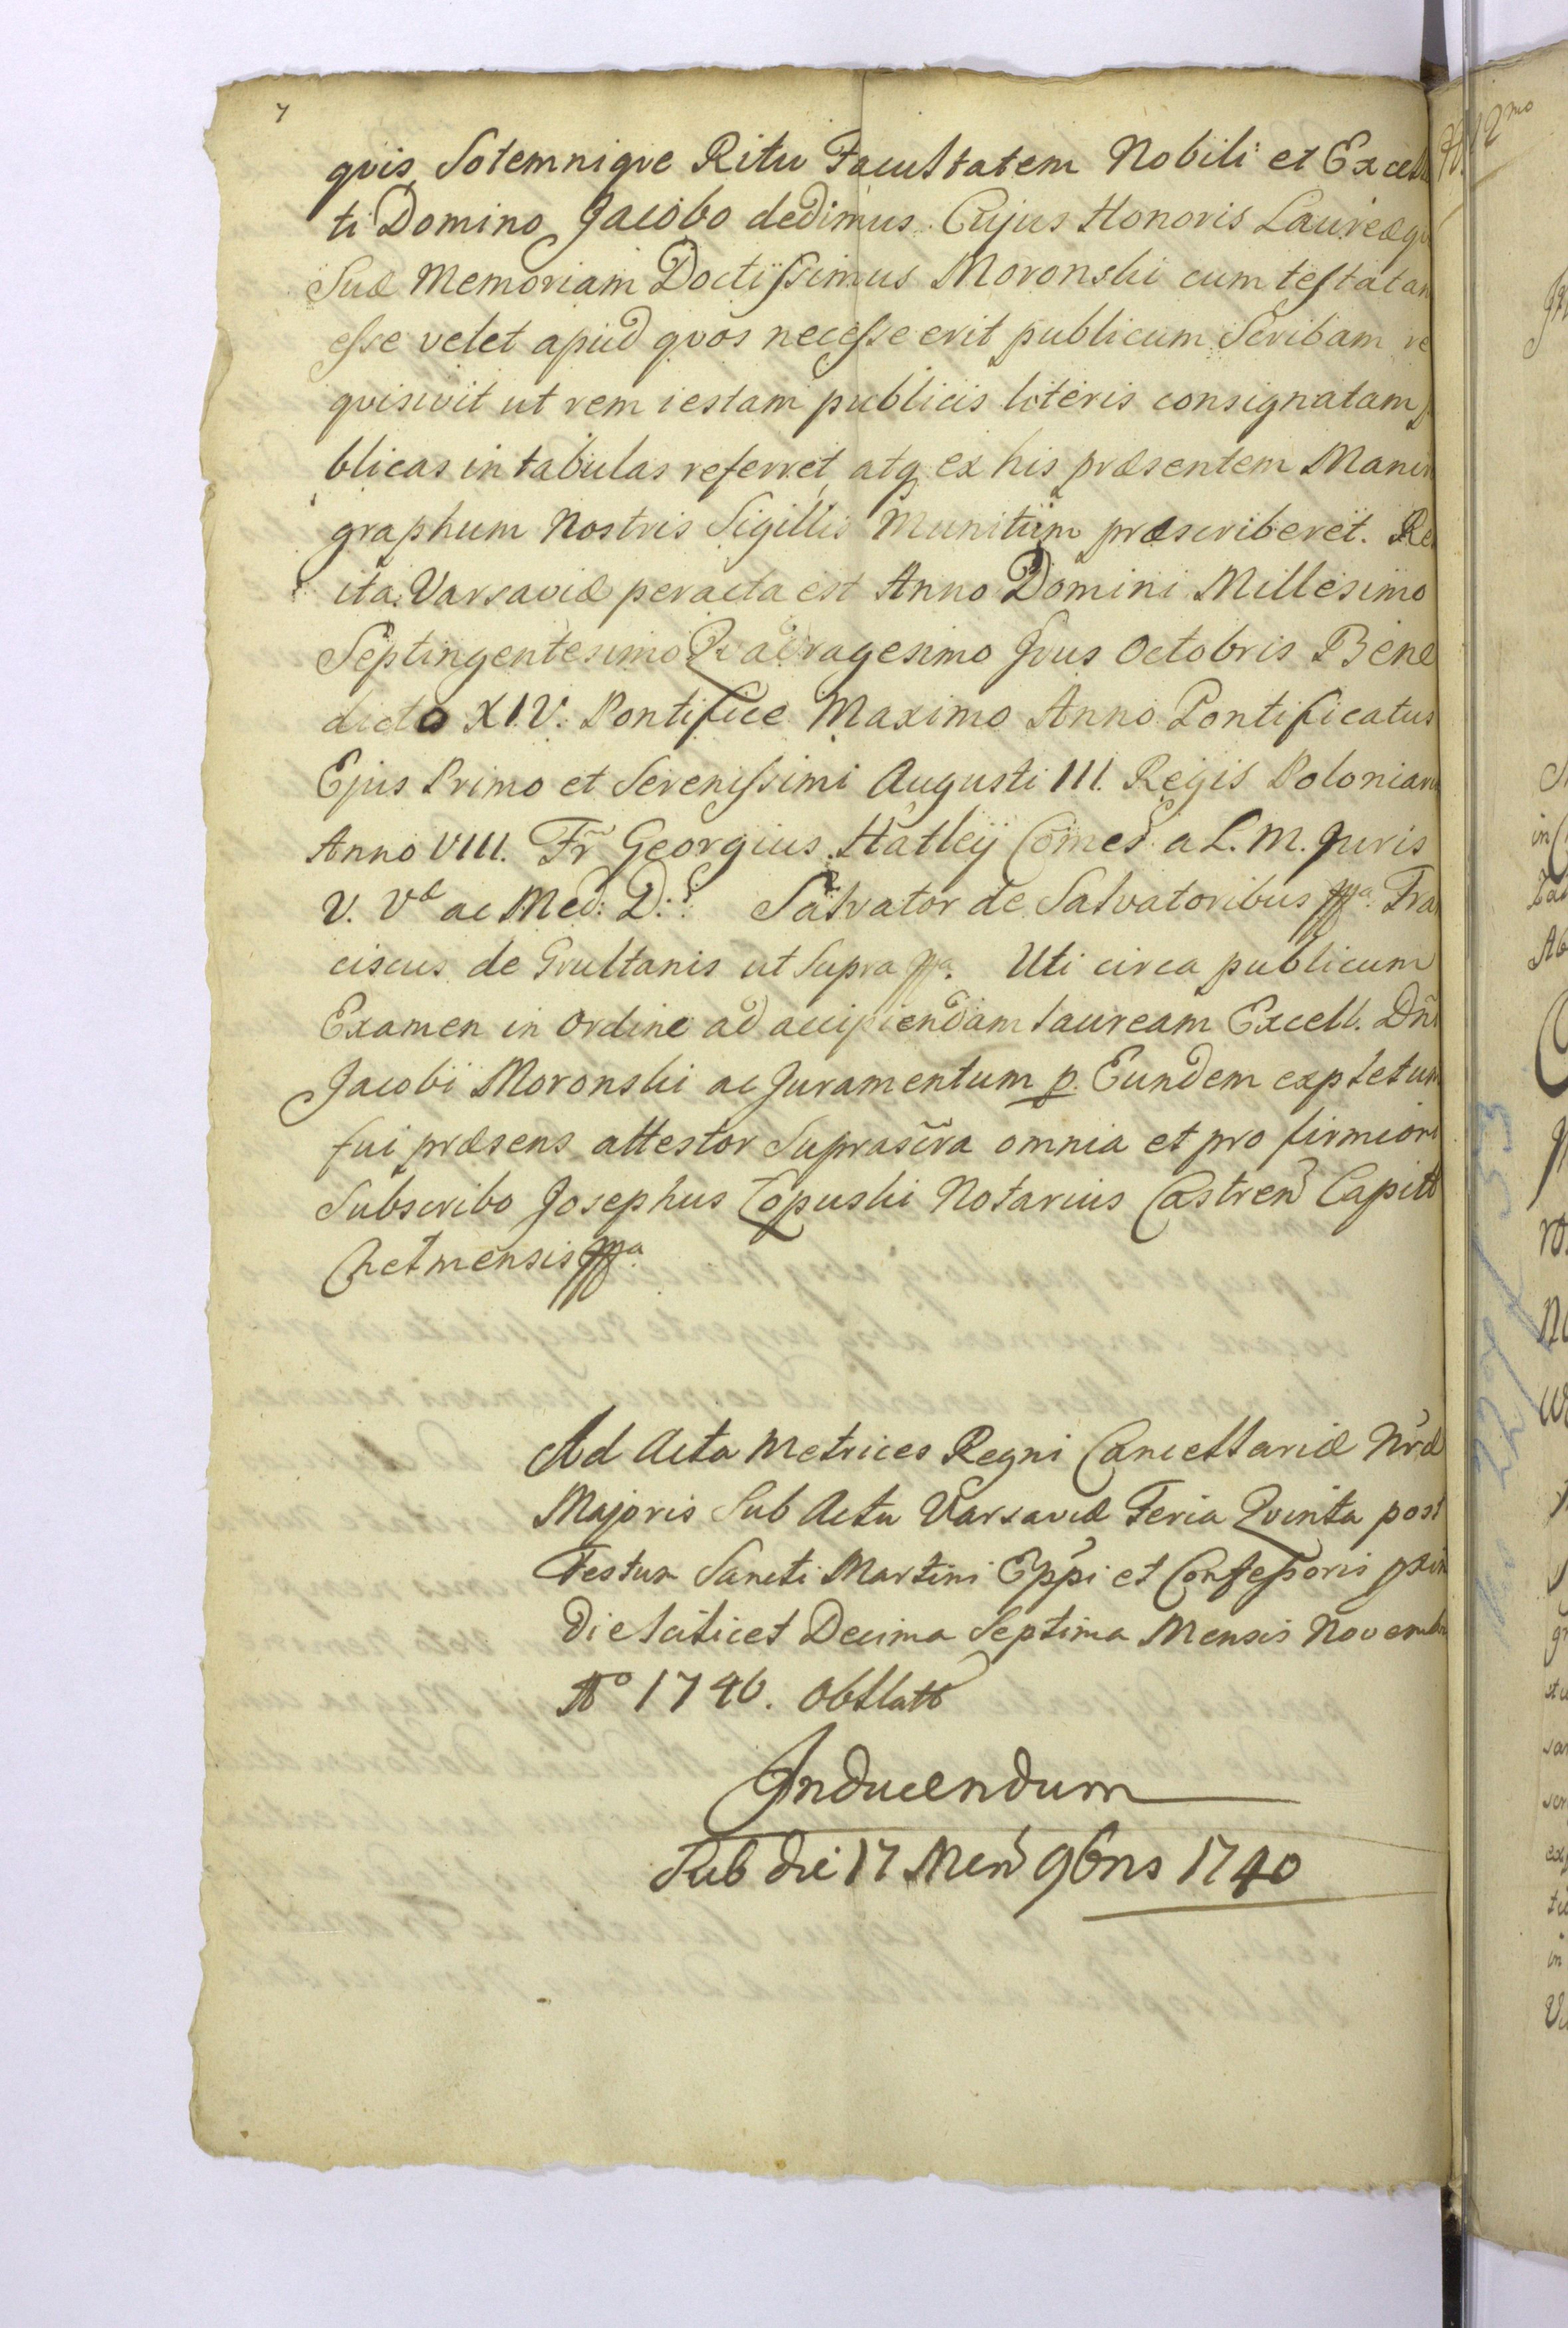 7
qvis, Solemniqve Ritu Facultatem Nobili et Excell
ti Domino Jacobo dedimus. Cujus Honoris Laureæqv
Suæ Memoriam Doctissimus Moronski cum testatam
esse velet apud qvos necesse erit publicum Scribam re
qvisivit ut rem iestam publicis literis consignatam p
blicas in tabulas referret, atq ex his præsentem Manu
graphum Nostris Sigillis Munitum præscriberet. Re
ita Varsaviæ peracta est Anno Domini Millesimo
Septingentesimo Qvadragesimo Jvus Octobris Bene
dicto XIV. Pontifice Maximo Anno Pontificatus
Ejus Primo et Serenissimi Augusti III. Regis Poloniaru
Anno VIII. Fr Georgius Hatleÿ Comes a L. M. Juris
V. Vd ac Med: D:r Salvator de Salvatoribus mpa. Fra
ciscus de Grultanis ut Supra mpa. Uti circa publicum
Examen in ordine ad accipiendam lauream Excell. Dni
Jacobi Moronski ac Juramentum p. Eundem expletum
fui præsens attestor Suprascra omnia et pro firmiori
Subscribo Josephus Łopuski Notarius Castren Capitt
Chelmensis mpa.
Ad Acta Metrices Regni Cancellariæ Nræ
Majoris Sub Actu Varsaviæ Feria Qvinta post
Festum Sancti Martini Eppi et Confessoris pxim
Die Scilicet Decima Septima Mensis Novembr
Ao 1740. obllatt
Inducendum
Sub die 17 Men 9bris 1740